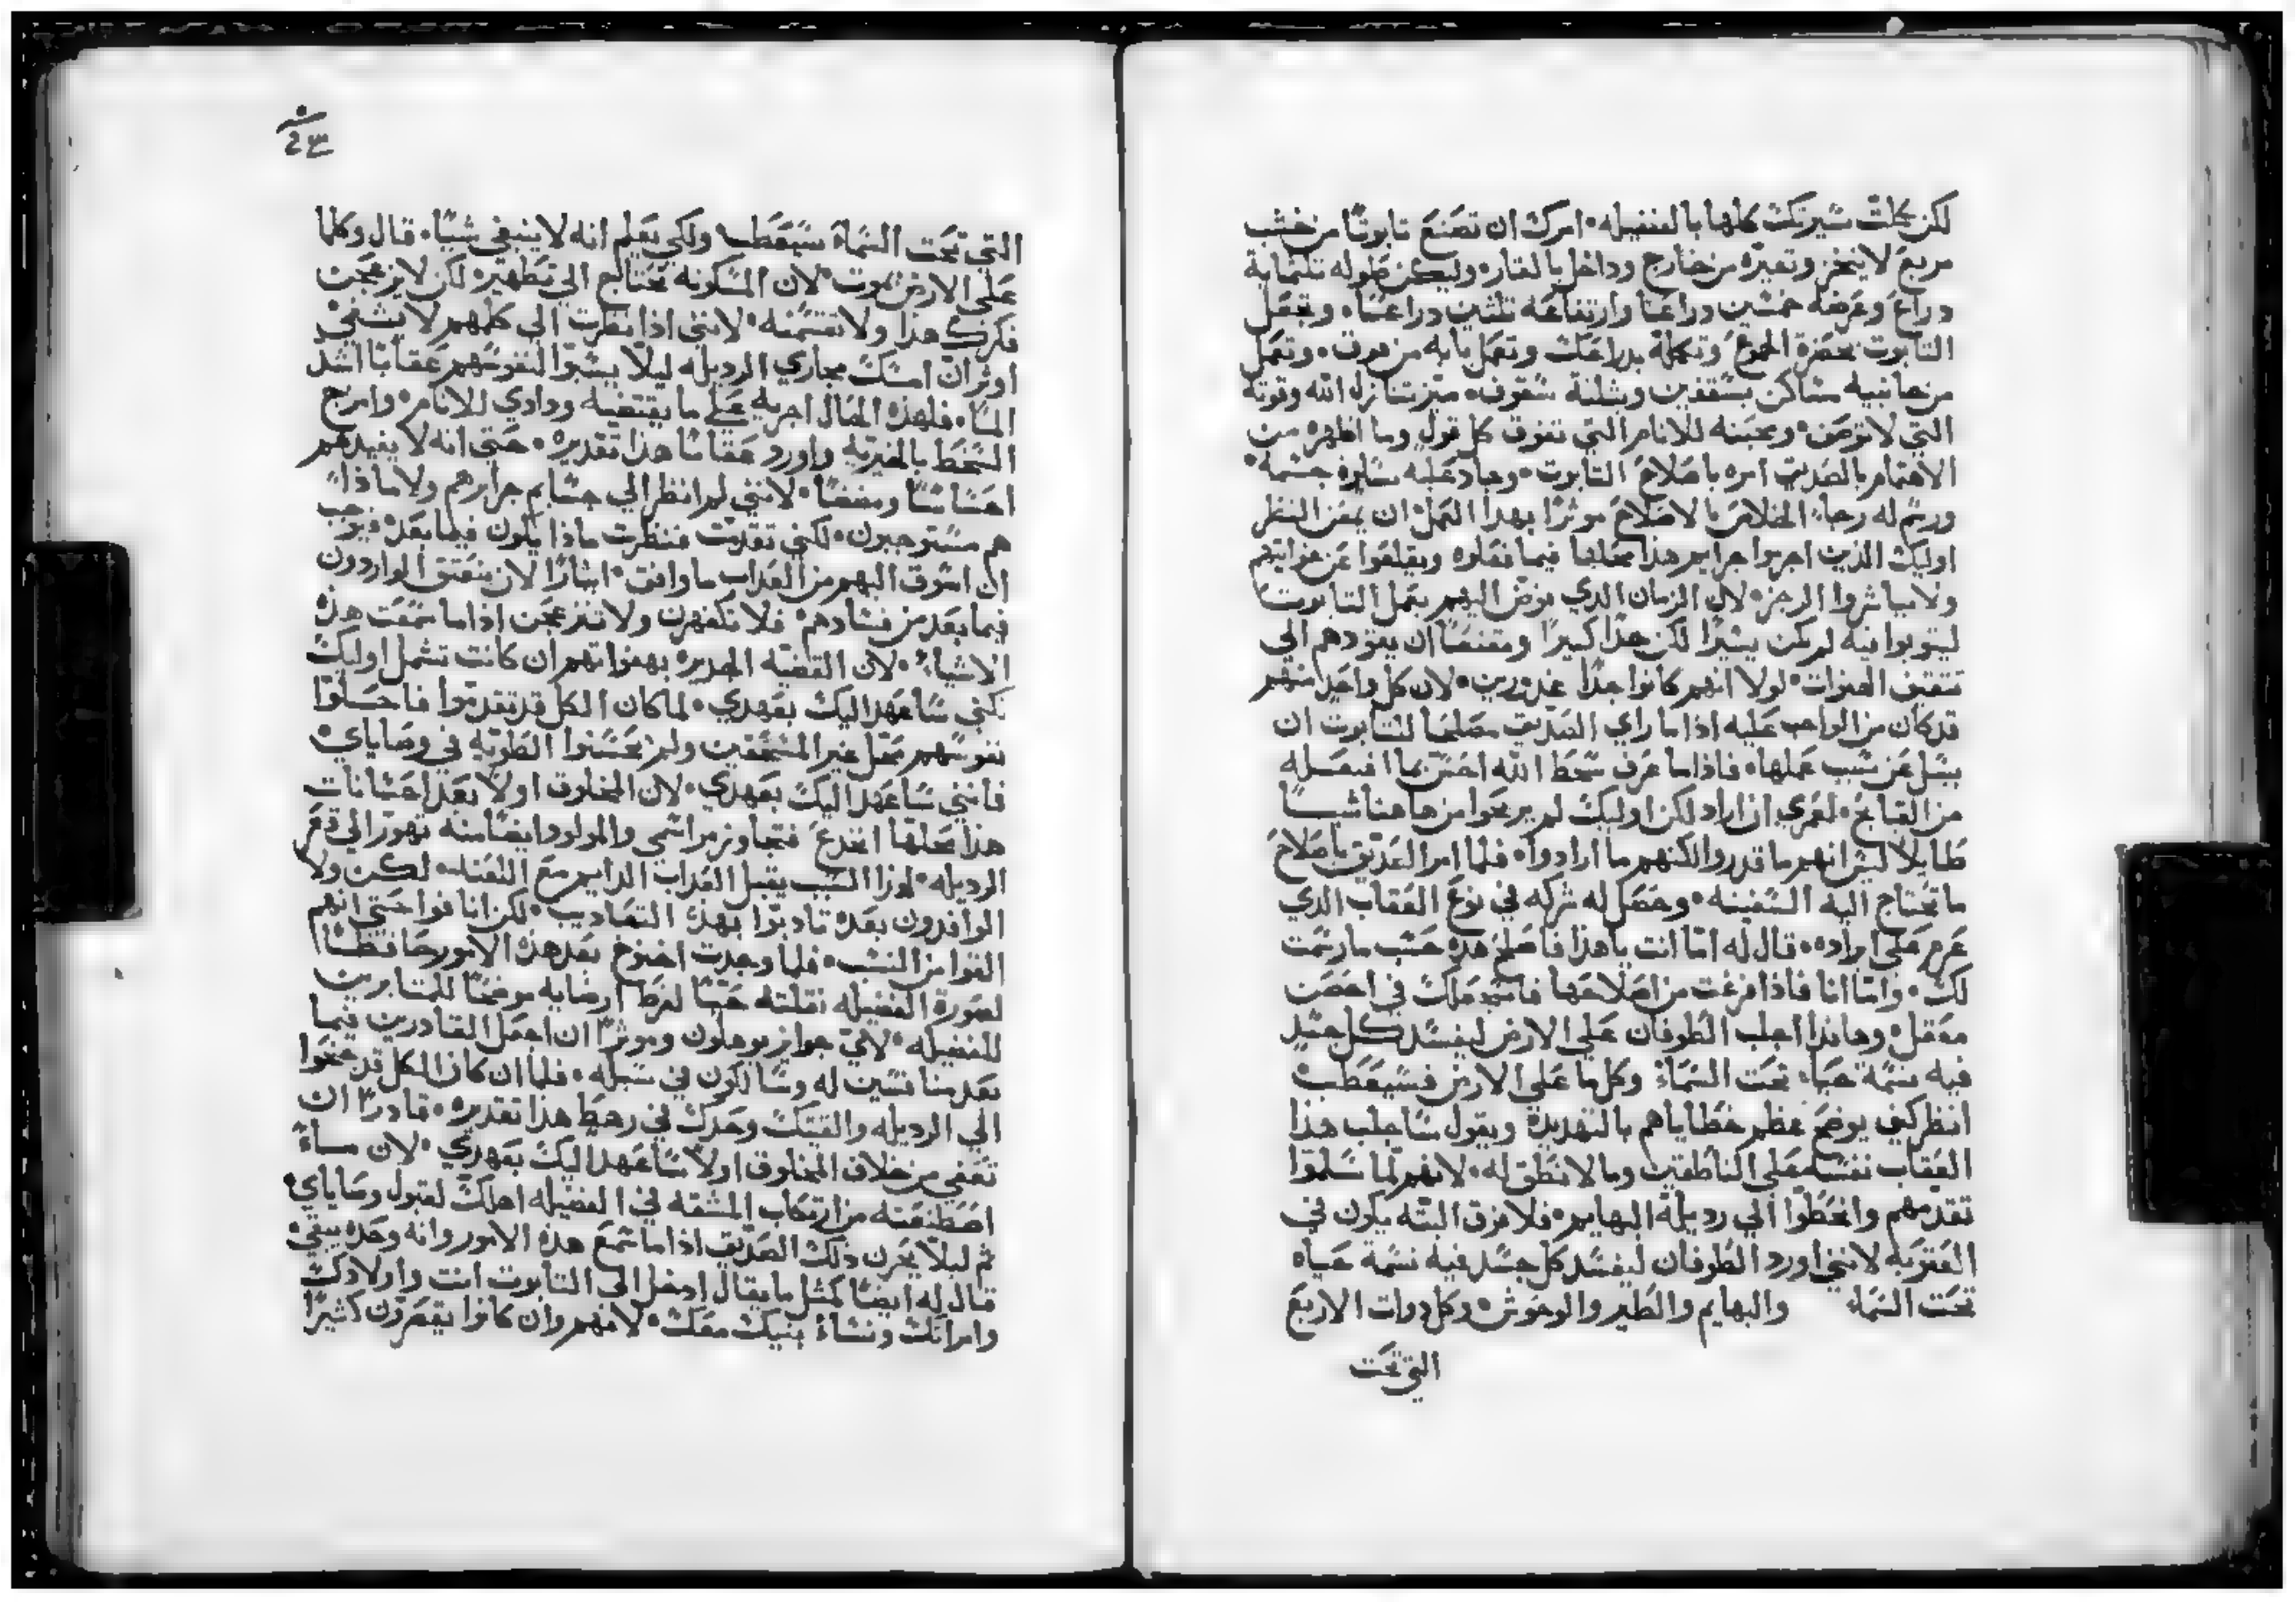 لكن كملت سيرتك كلها بالفضيله٠ امرك ان تصنع تابوتًا من خشب
مربع لا ينخز وتغيره من خارج وداخل بالقار٠ وليكن طوله تلتماية
دراع وعرضه خمسين دراعًا وارتفاعه تلتين دراعًا٠ وتجعل
التابوت بحضرة الجموع وتكمله بدراعك وتعمل بابه من فوق٠ وتعمل
من جانبيه مساكن بسقفين وبثلثة سقوف٠ ميز تنازل الله وقوته
التي لا توصف٠ ومحبته للانام التي تفوق كل قول وما اظهره من
الاهتمام بالصديق امره باصلاح التابوت٠
ورسم له رجاء الخلاص بالاصلاح موثرًا بهدا العمل ان يمعن النظر
اوليك الذين اجرموا جرايم هذا محلها فيما فعلوه ويقلعوا عن هفواتهم
ولا يباشروا الرجز٠ لان الزمان الدي فوض اليهم بعمل التابوت
ليتوبوا فيه لم يكن يسيرًا لكن جدًا كبيرًا ومقنعًا ان يقودهم الي
الهفوات٠ لولا انهم كانوا جدًا غير٠ لان كل واحد منهم
قد كان من الواجب عليه اذا ما راي الصديق مصلحًا للتابوت ان
يسل عن سبب عملها٠ فاذا ما عرف سخط الله احتمى مما افتعله
من القبايح٠ لعمري ان اراد لكن اوليك لم يربحوا من هاهنا شيًا
طايلًا ليس انهم ما قدروا لكنهم ما ارادوا٠ فلما امر الصديق باصلاح
ما تحتاج اليه السفينه٠ وحصل له شركه في نوع العقاب الدي
عزم علي ايراده٠ قال له امّا انت يا هذا فاصلح هده حسب ما رسمت
لك٠ وامّا انا فاذا فرغت من اصلاحها فاجعلك في احصن
معقل٠ وهانذا اجلب الطوفان علي الارض ليفسد كل جسد
فيه نسمة حياه تحت السماء وكل ما علي الارض فسيعطب
انظر كيف يوضح عظم خطاياهم بالتهديد ويقول ساجلب هذا
العقاب نفسه علي الناطقين وما لا نطق له٠ لانهم لما سلموا
تقدمهم وانحطوا الي رديلة البهايم٠ فلا فرق البته يكون في
العقوبه لانني اورد الطوفان ليفسد كل جسد فيه نسمة حياه
تحت السماء والبهايم والطير والوحوش٠ وكل دوات الاربع
التي تحت
٢٣
التي تحت السماء سيعطب ولكي تعلم انه لا ينبقي شيًا٠ قال وكلما
علي الارض يموت٠ لان المسكونه تحتاج الي تطهير٠ لكن لا يزعجن
فكرك هذا ولا تغتمنه٠ لانني اذا نظرت الي كلهم لا يشفي
اوثر ان امسك مجاري الرديله ليلا يسببوا لنفوسهم عقابًا اشد
المًا٠ فلهذه الحال اجريه علي ما يقتضيه ودادي للانام٠ وامزج
السخط بالخيريه واورد عقابًا هذا تقديره٠ حتي انه لا يفيدهم
احساسًا ومضضًا٠ لانني لم انظر الي حسايم جرايرهم ولا ما ذا
هم مستوجبون٠ لكني تقدمت فنظرت ماذا يكون فيما بعد٠ فيجب
ان اسوق اليهم من العداب ما وافق٠ ايثارًا لان ينعتق الواردون
فيما بعد من فسادهم٠ فلا تكفهرن ولا تنزعجن اذا ما سمعت هذه
الاشياء٠ لان القضيه الجديره بهفواتهم ان كانت تشمل اوليك
لكني ساعهد اليك بعهدي٠ لما كان الكل قد تقدموا فاحسلوا
نفوسهم محل غير المستحقين ولم يحسنوا الطويه في وصاياي٠
فانني ساعهد اليك بعهدي٠ لان المخلوق اولًا بعد احسانات
هذا محلها انخدع فتجاوز مراسمي والمولود ايضًا منه تهور الي قعر
الرديله٠ لهذا السبب يقبل العداب الدايم مع اللعنه٠ لكن ولا
الوافدون بعده تادبوا بهذه التهاديب٠ لكن انافوا حتي انهم
القوا من النسب٠ فلما وجدت اخنوخ بعد هذه الامور حافظًا
لصورة الفضيله نقلته حيًا لفرط ارضايه موضحًا للمثابرين
للفضيله٠ لاي جوايز يوهلون وموثرًا ان اجعل القادرين فيما
بعد متافسين له وسالكون في سبله٠ فلما ان كان الكل قد جنحوا
الي الرديله والقيتك وحدك في رهط هذا تقديره٠ قادرًا ان
تعفي من خلاف المخلوق اولًا ساعهد اليك بعهدي٠ لان ما
اصطنعته من ارتكاب المشقه في الفضيله اهلك لقبول وصاياي٠
ثم ليلا يحزن ذلك الصديق اذا ما سمع هذه الامور وانه وحده يبقي
قال له ايضًا كمثل ما يقال ادخل الي التابوت انت واولادك
وامراتك ونساء بنيك معك٠ لانهم وان كانوا يقصرون كثيرًا